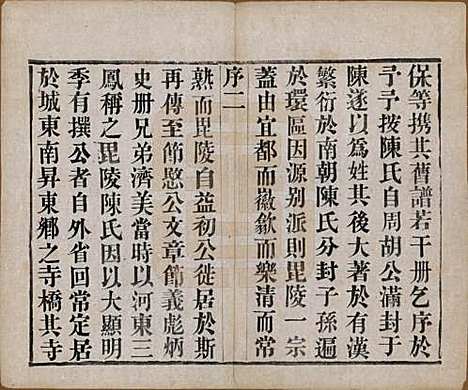 保等携其舊譜若干册乞序於
予予按陳氏自周胡公滿封于
陳遂以為姓其後大著於有漢
繁衍於南朝陳氏分封子孫遍
於環區因源别派則毘陵一宗
蓋由宜都而徽歙而樂清而常
序二
熟而毘陵自益初公徙居於斯
再傳至節愍公文章節義彪炳
史册兄弟濟美當時以河東三
鳳稱之毘陵陳氏因以大顯明
季有撰公者自外省回常定居
於城東南昇東鄉之寺橋其寺